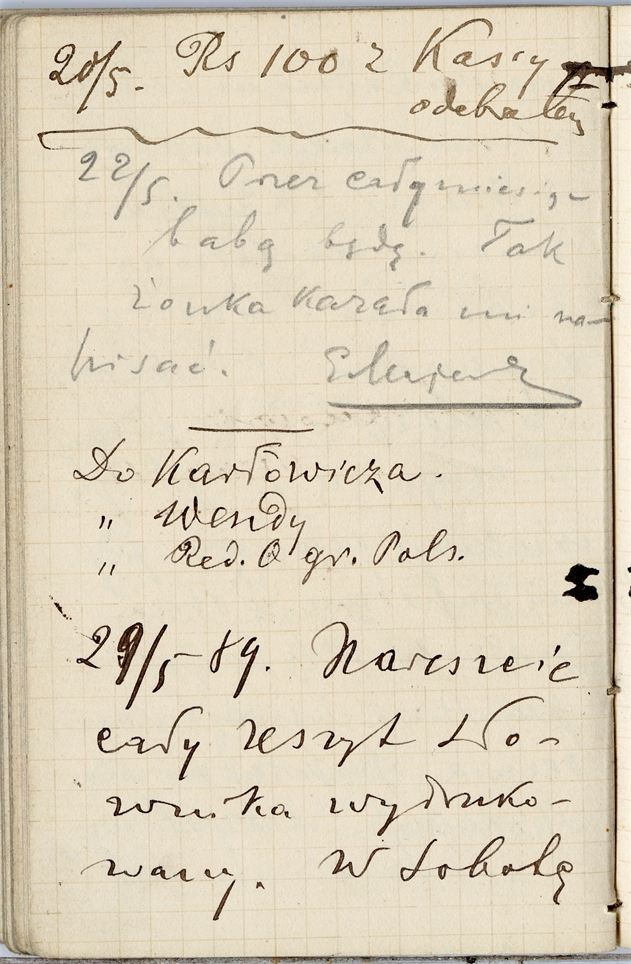 20/5. Rs 100 z Kassy
odebrałem
22/5. Przez cały miesiąc
babą będę. Tak
żonka kazała mi na-
pisać.
Do Karłowicza.
" Wendy
" Red. Ogr. Pols.
29/5 89. Nareszcie
cały zeszyt Sło-
wnika wydruko-
wany. W Sobotę